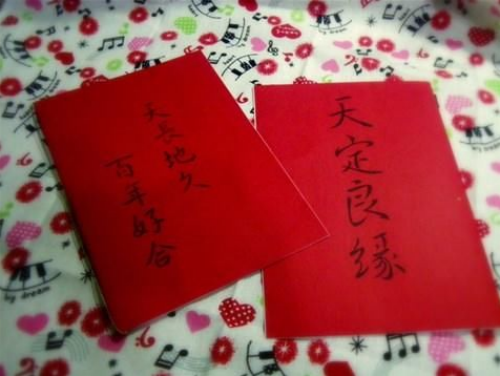 天長地久
百年好合
天定良缘
by dream